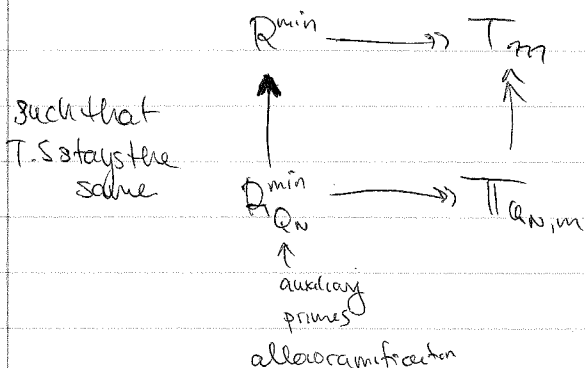 R^min ⟶» T_m
such that
T.S stays the
same
R^min_Q_N ⟶» 𝕋_Q_N,m
↑
auxiliary
primes
allow ramification